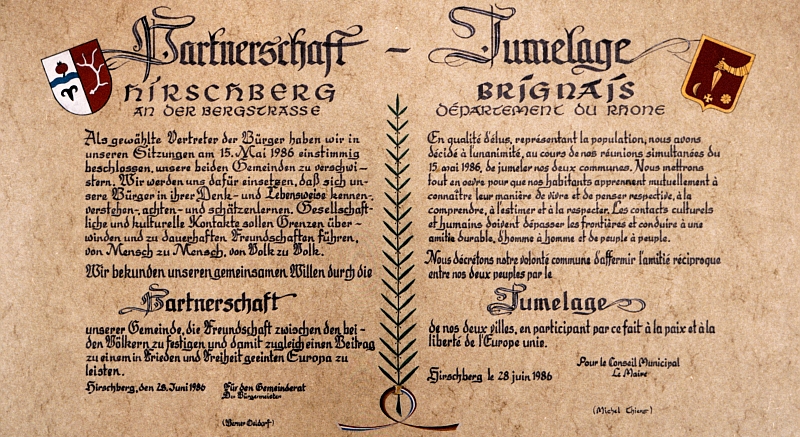 Partnerschaft – Jumelage
HIRSCHBERG
AN DER BERGSTRASSE
Als gewählte Vertreter der Bürger haben wir in
unseren Sitzungen am 15. Mai 1986 einstimmig
beschlossen, unsere beiden Gemeinden zu verschwi-
stern. Wir werden uns dafür einsetzen, daß sich un-
sere Bürger in ihrer Denk- und Lebensweise kennen-,
verstehen-, achten- und schätzenlernen. Gesellschaft-
liche und kulturelle Kontakte sollen Grenzen über-
winden und zu dauerhaften Freundschaften führen,
von Mensch zu Mensch, von Volk zu Volk.
Wir bekunden unseren gemeinsamen Willen durch die
Partnerschaft
unserer Gemeinde, die Freundschaft zwischen den bei-
den Völkern zu festigen und damit zugleich einen Beitrag
zu einem in Frieden und Freiheit geeinten Europa zu
leisten.
Hirschberg, den 28. Juni 1986
Für den Gemeinderat
Der Bürgermeister
(Werner Oeldorf)
BRIGNAIS
DÉPARTEMENT DU RHONE
En qualité d'élus, représentant la population, nous avons
décidé à l'unanimité, au cours de nos réunions simultanées du
15 mai 1986, de jumeler nos deux communes. Nous mettrons
tout en oevre pour que nos habitants apprennent mutuellement à
connaître leur manière de vivre et de penser respective, à la
comprendre, à l'estimer et à la respecter. Les contacts culturels
et humains doivent dépasser les frontières et conduire à une
amitie durable, d'homme à homme et de peuple à peuple.
Nous décrétons notre volonté commune d'affermir l'amitié réciproque
entre nos deux peuples par le
Jumelage
de nos deux villes, en participant par ce fait à la paix et à la
liberté de l'Europe unie.
Hirschberg le 28 juin 1986
Pour le Conseil Municipal
Le Maire
(Michel Thiers)